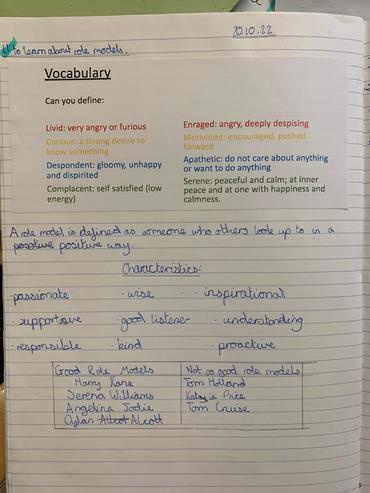 20.10.22
to learn about role models.
Vocabulary
Can you define:
Livid: very angry or furious
Curious: a strong desire to
know something
Despondent: gloomy, unhappy
and dispirited
Complacent: self satisfied (low
energy)
Enraged: angry, deeply despising
Motivated: encouraged, pushed
forward
Apathetic: do not care about anything
or want to do anything
Serene: peaceful and calm; at inner
peace and at one with happiness and
calmness.
A role model is defined as someone who others look up to in a
positive way.
Characteristics:
· passionate · wise · inspirational
· supportive · good listener · understanding
· responsible · kind · proactive
Good Role Models
Harry Kane
Serena Williams
Angelina Jodie
Alcott
Not so good role models
Tom Holland
Price
Tom Cruise